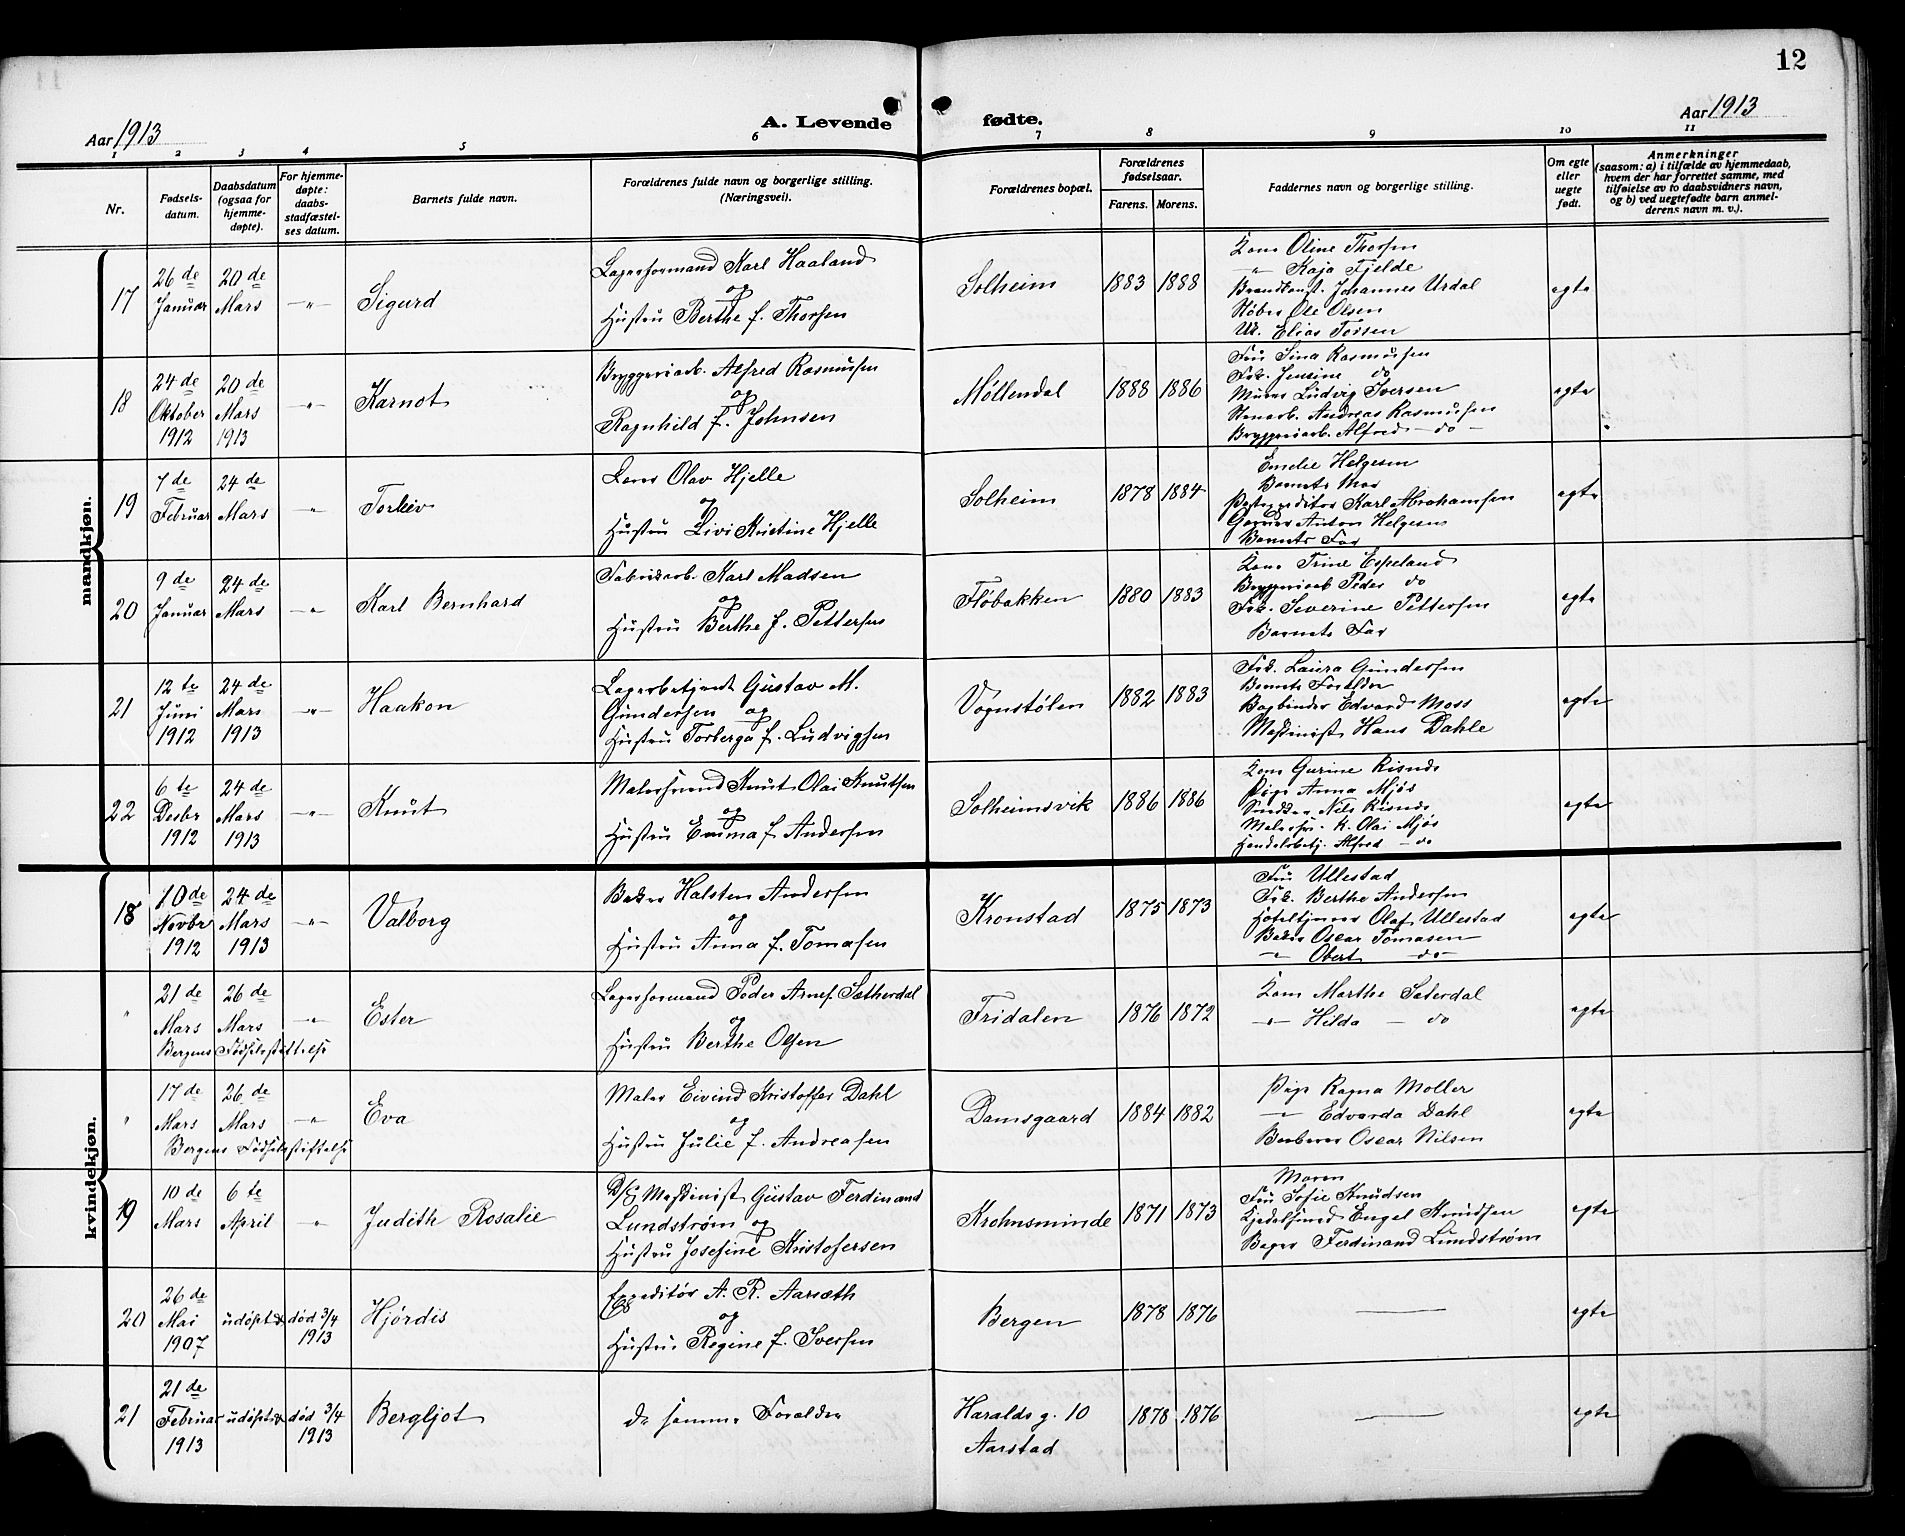 12
Aar 1913
A. Levende fødte.
Aar 1913
1 2 3 4 5 6 7 8 9 10 11
Nr.
Fødsels-
datum.
Daabsdatum
(ogsaa for
hjemme-
døpte).
For hjemme-
døpte:
daabs-
stadfæstel-
ses datum.
Barnets fulde navn.
Forældrenes fulde navn og borgerlige stilling.
(Næringsvei).
Forældrenes bopæl.
Forældrenes
fødselsaar.
Farens. Morens.
Faddernes navn og borgerlige stilling.
Om egte
eller
uegte
født.
Anmerkninger
(saasom: a) i tilfælde av hjemmedaab,
hvem der har forrettet samme, med
tilføielse av to daabsvidners navn,
og b) ved uegtefødte barn anmel-
derens navn m. v.).
mandkjøn.
17
26 de
Januar
20 de
Mars
-"-
Sigurd
Lagerformand Karl Haaland
og
Hustru Berthe f. Thorsen
Solheim
1883 1888
Kone Oline Thorsen
-"- Kaja Fjelde
Brandkonst. Johannes Urdal
Støber Ole Olsen
Elias Torsen
egte
18
24 de
Oktober
1912
20 de
Mars
1913
-"-
Karnot
Bryggeriarb. Alfred Rasmusen
og
Ragnhild f. Johnsen
Møllendal
1888 1886
Fru Sina Rasmusen
Frk. Jensine do
Murer Ludvig Iversen
Stenarb. Andreas Rasmusen
Bryggeriarb. Alfred - do -
egte
19
7 de
Februar
24 de
Mars
-"-
Torleiv
Lærer Olav Hjelle
og
Hustru Livi Kristine Hjelle
Solheim
1878 1884
Emelie Helgesen
Barnets Mor
Postexpeditør Karl Abrahamsen
Garver Anton Helgesen
Barnets Far
egte
20
9 de
Januar
24 de
Mars
-"-
Karl Bernhard
Fabrikarb. Karl Madsen
og
Hustru Berthe f. Pettersen
Fløbakken
1880 1883
Kone Trine Espeland
Bryggeriarb Peder do
Frk. Severine Pettersen
Barnets Far
egte
21
12 te
Juni
1912
24 de
Mars
1913
-"-
Haakon
Lagerbetjent Gustav M.
Gundersen og
Hustru Torberga f. Ludvigsen
Vognstølen
1882 1883
Frk. Laura Gundersen
Barnets Forældre
Bogbinder Edvard Moss
Maskinist Hans Dahle
egte
22
6 te
Desbr
1912
24 de
Mars
1913
-"-
Knut
Malersvend Knut Olai Knutsen
og
Hustru Emma f. Andersen
Solheimsvik
1886 1886
Kone Gurine Risnes
Pige Anna Mjøs
Snekker Nils Risnes
Malersv. K. Olai Mjøs
Handelsbetj. Alfred - do
egte
kvindekjøn.
18
10 de
Novbr
1912
24 de
Mars
1913
-"-
Valborg
Baker Halsten Andersen
og
Hustru Anna f. Tomasen
Kronstad
1875 1873
Fru Ullestad
Frk. Berthe Andersen
Hoteltjener Olaf Ullestad
Baker Oscar Tomasen
-"- Obert - do -
egte
"
21 de
Mars
26 de
Mars
Bergens Fødselsstiftelse
-"-
Ester
Lagerformand Peder Arnef. Sætherdal
og
Hustru Berthe Olsen
Fridalen
1876 1872
Kone Marthe Sæterdal
-"- Hilda - do
egte
"
17 de
Mars
26 de
Mars
Bergens Fødselsstiftelse
-"-
Eva
Maler Eivind Kristoffer Dahl
og
Hustru Julie f. Andreasen
Damsgaard
1884 1882
Pige Ragna Møller
-"- Edvarda Dahl
Barberer Oscar Nilsen
egte
19
10 de
Mars
6 te
April
"
Judith Rosalie
D/S Maskinist Gustav Ferdinand
Lundstrøm og
Hustru Josefine Kristofersen
Krohnsminde
1871 1873
Moren
Fru Sofie Knudsen
Kjedelsmed Engel Knudsen
Bager Ferdinand Lundstrøm
egte
20
26 de
Mai
1907
udøpt
død 3/4
1913
Hjørdis
Expeditør A. R. Aarsæth
og
Hustru Regine f. Iversen
Bergen
1878 1876
egte
21
21 de
Februar
1913
udøpt
død 3/4
1913
Bergljot
de samme Forældre
Haralds g. 10
Aarstad
1878 1876
egte